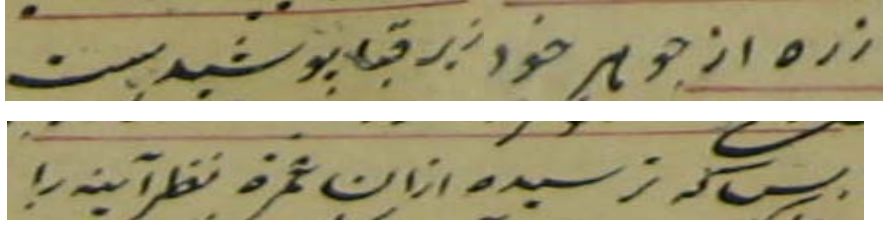 زره از جوهر خود زیر قبا پوشیدست
بس که ترسیده ازان غمزه نظر آینه را